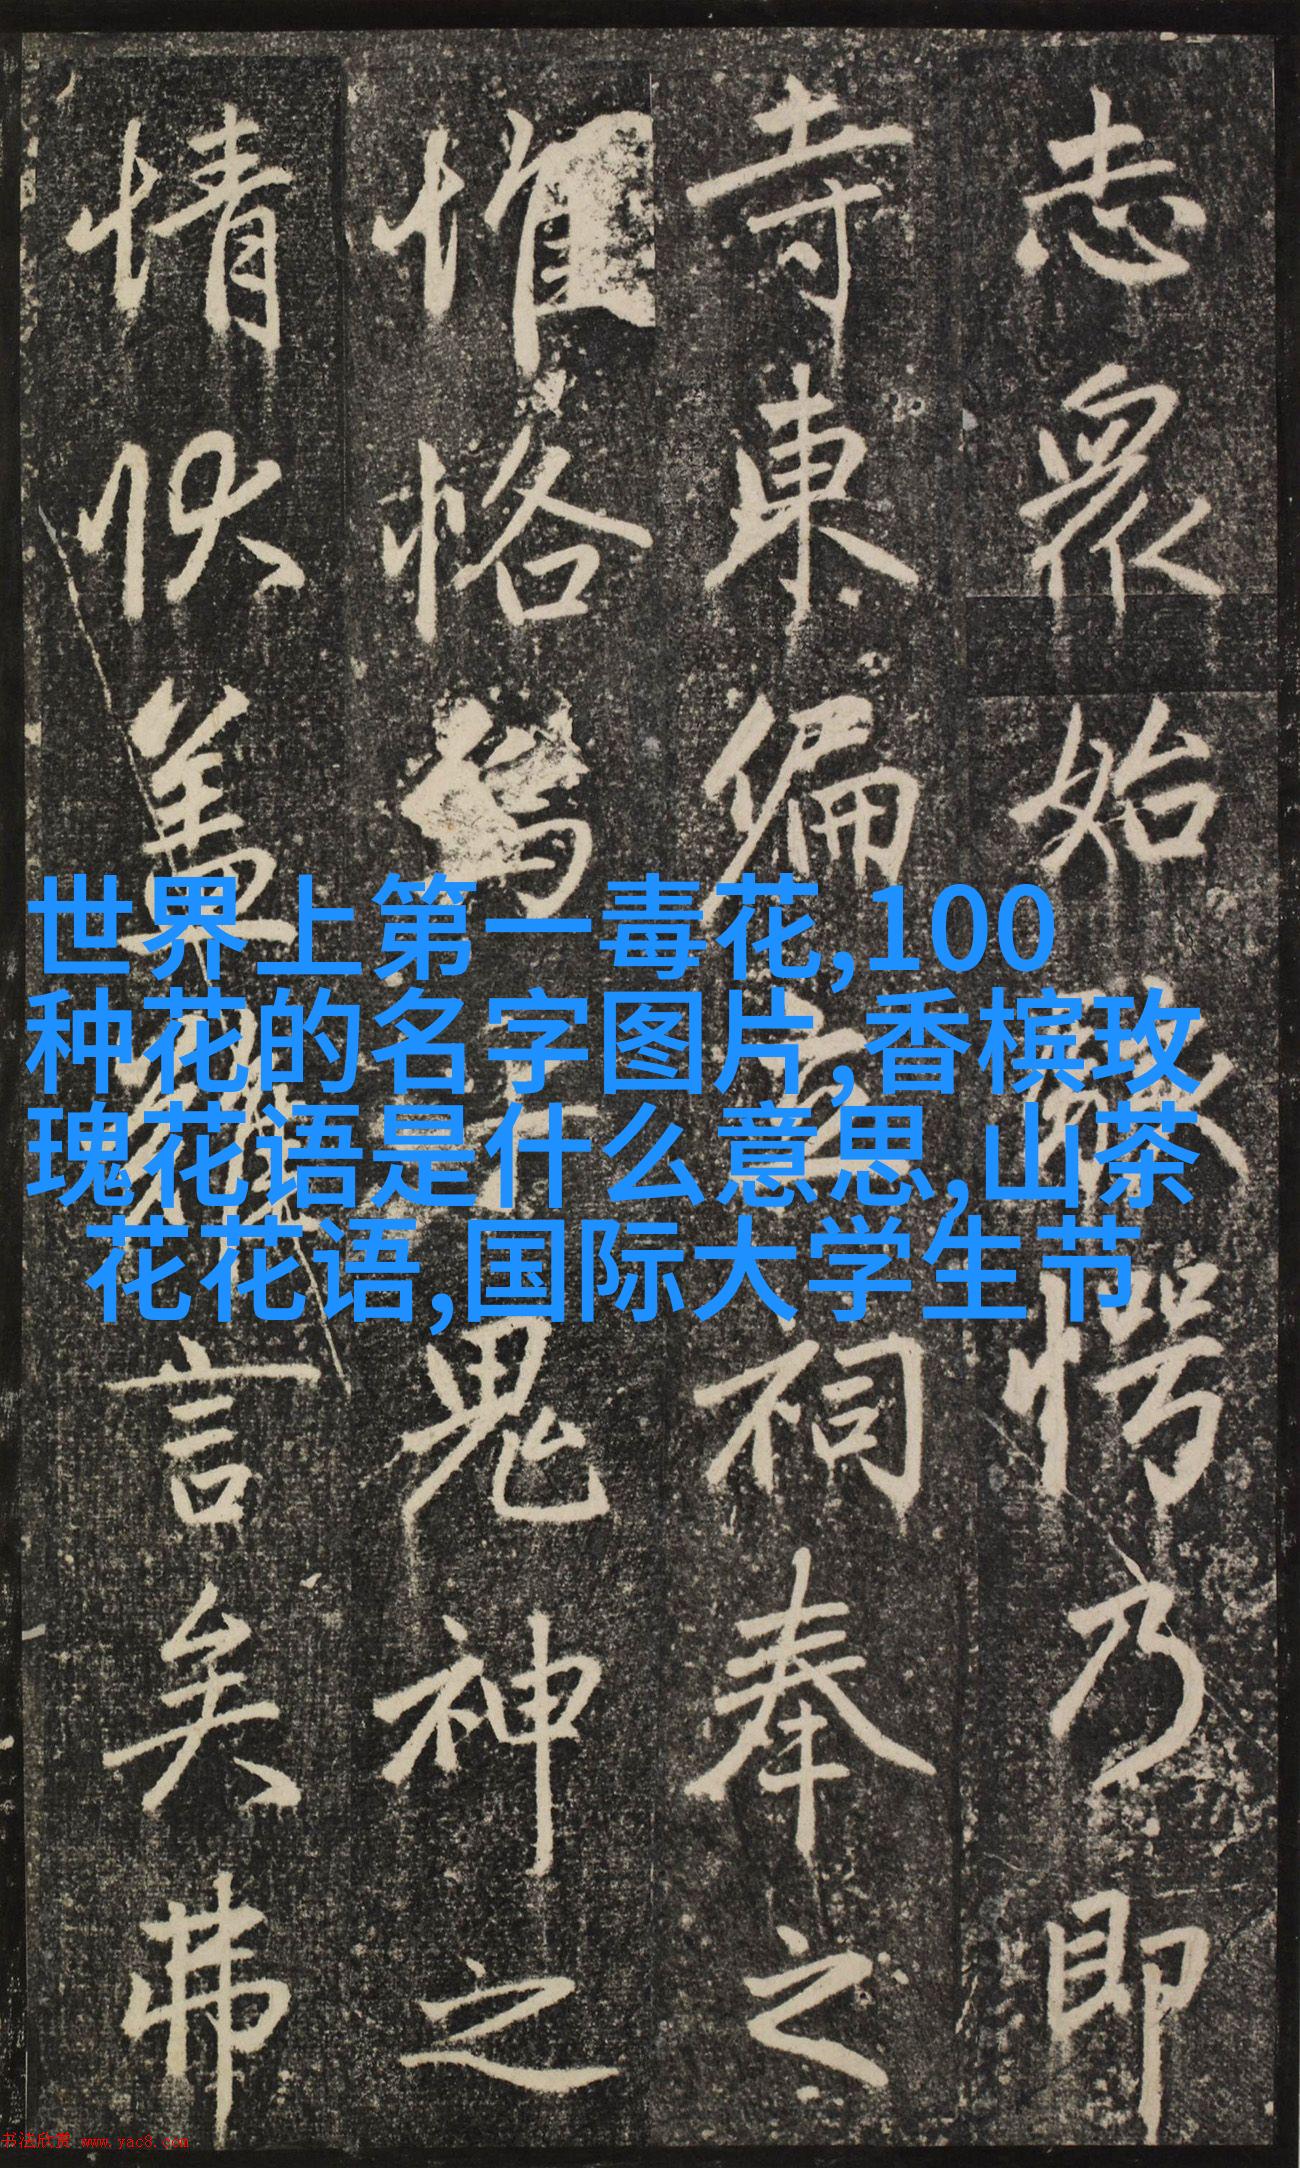 志眾始愕乃即
寺東偏立祠奉之
惟恪鬼神之
情狀蓋難言矣弗
世界上第一毒花,100
种花的名字图片,香槟玫
瑰花语是什么意思,山茶
花花语,国际大学生节
书法欣赏 www.yac8.com